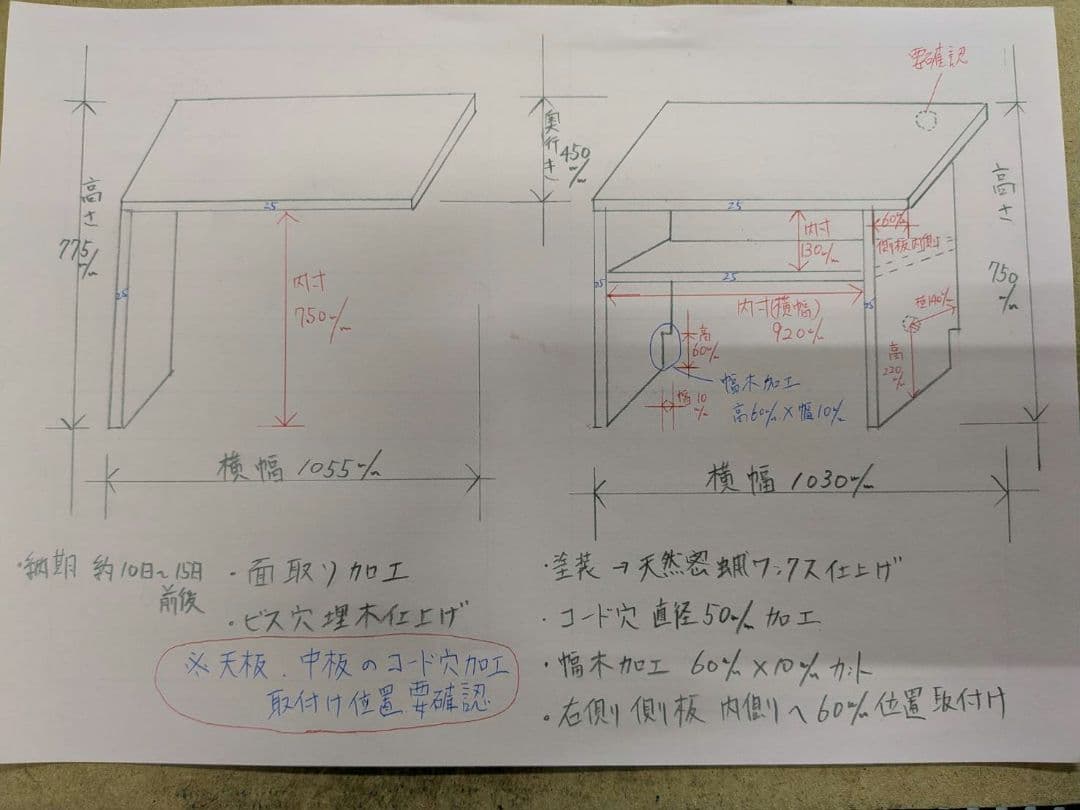 要確認
高さ
775m/m
25
25
内寸
750m/m
横幅 1055m/m
奥行き
450m/m
25
内寸
130m/m
60m/m
側板内側
高さ
750m/m
25
25
25
内寸(横幅)
920m/m
高
60m/m
幅10m/m
幅木加工
高60m/m×幅10m/m
140m/m
高
220m/m
横幅 1030m/m
・納期 約10日~15日
前後
・面取り加工
・ビス穴埋木仕上げ
※天板、中板のコード穴加工
取付け位置要確認
・塗装→天然蜜蝋ワックス仕上げ
・コード穴 直径50m/m加工
・幅木加工 60m/m×10m/mカット
・右側 側板 内側へ60m/m位置取付け